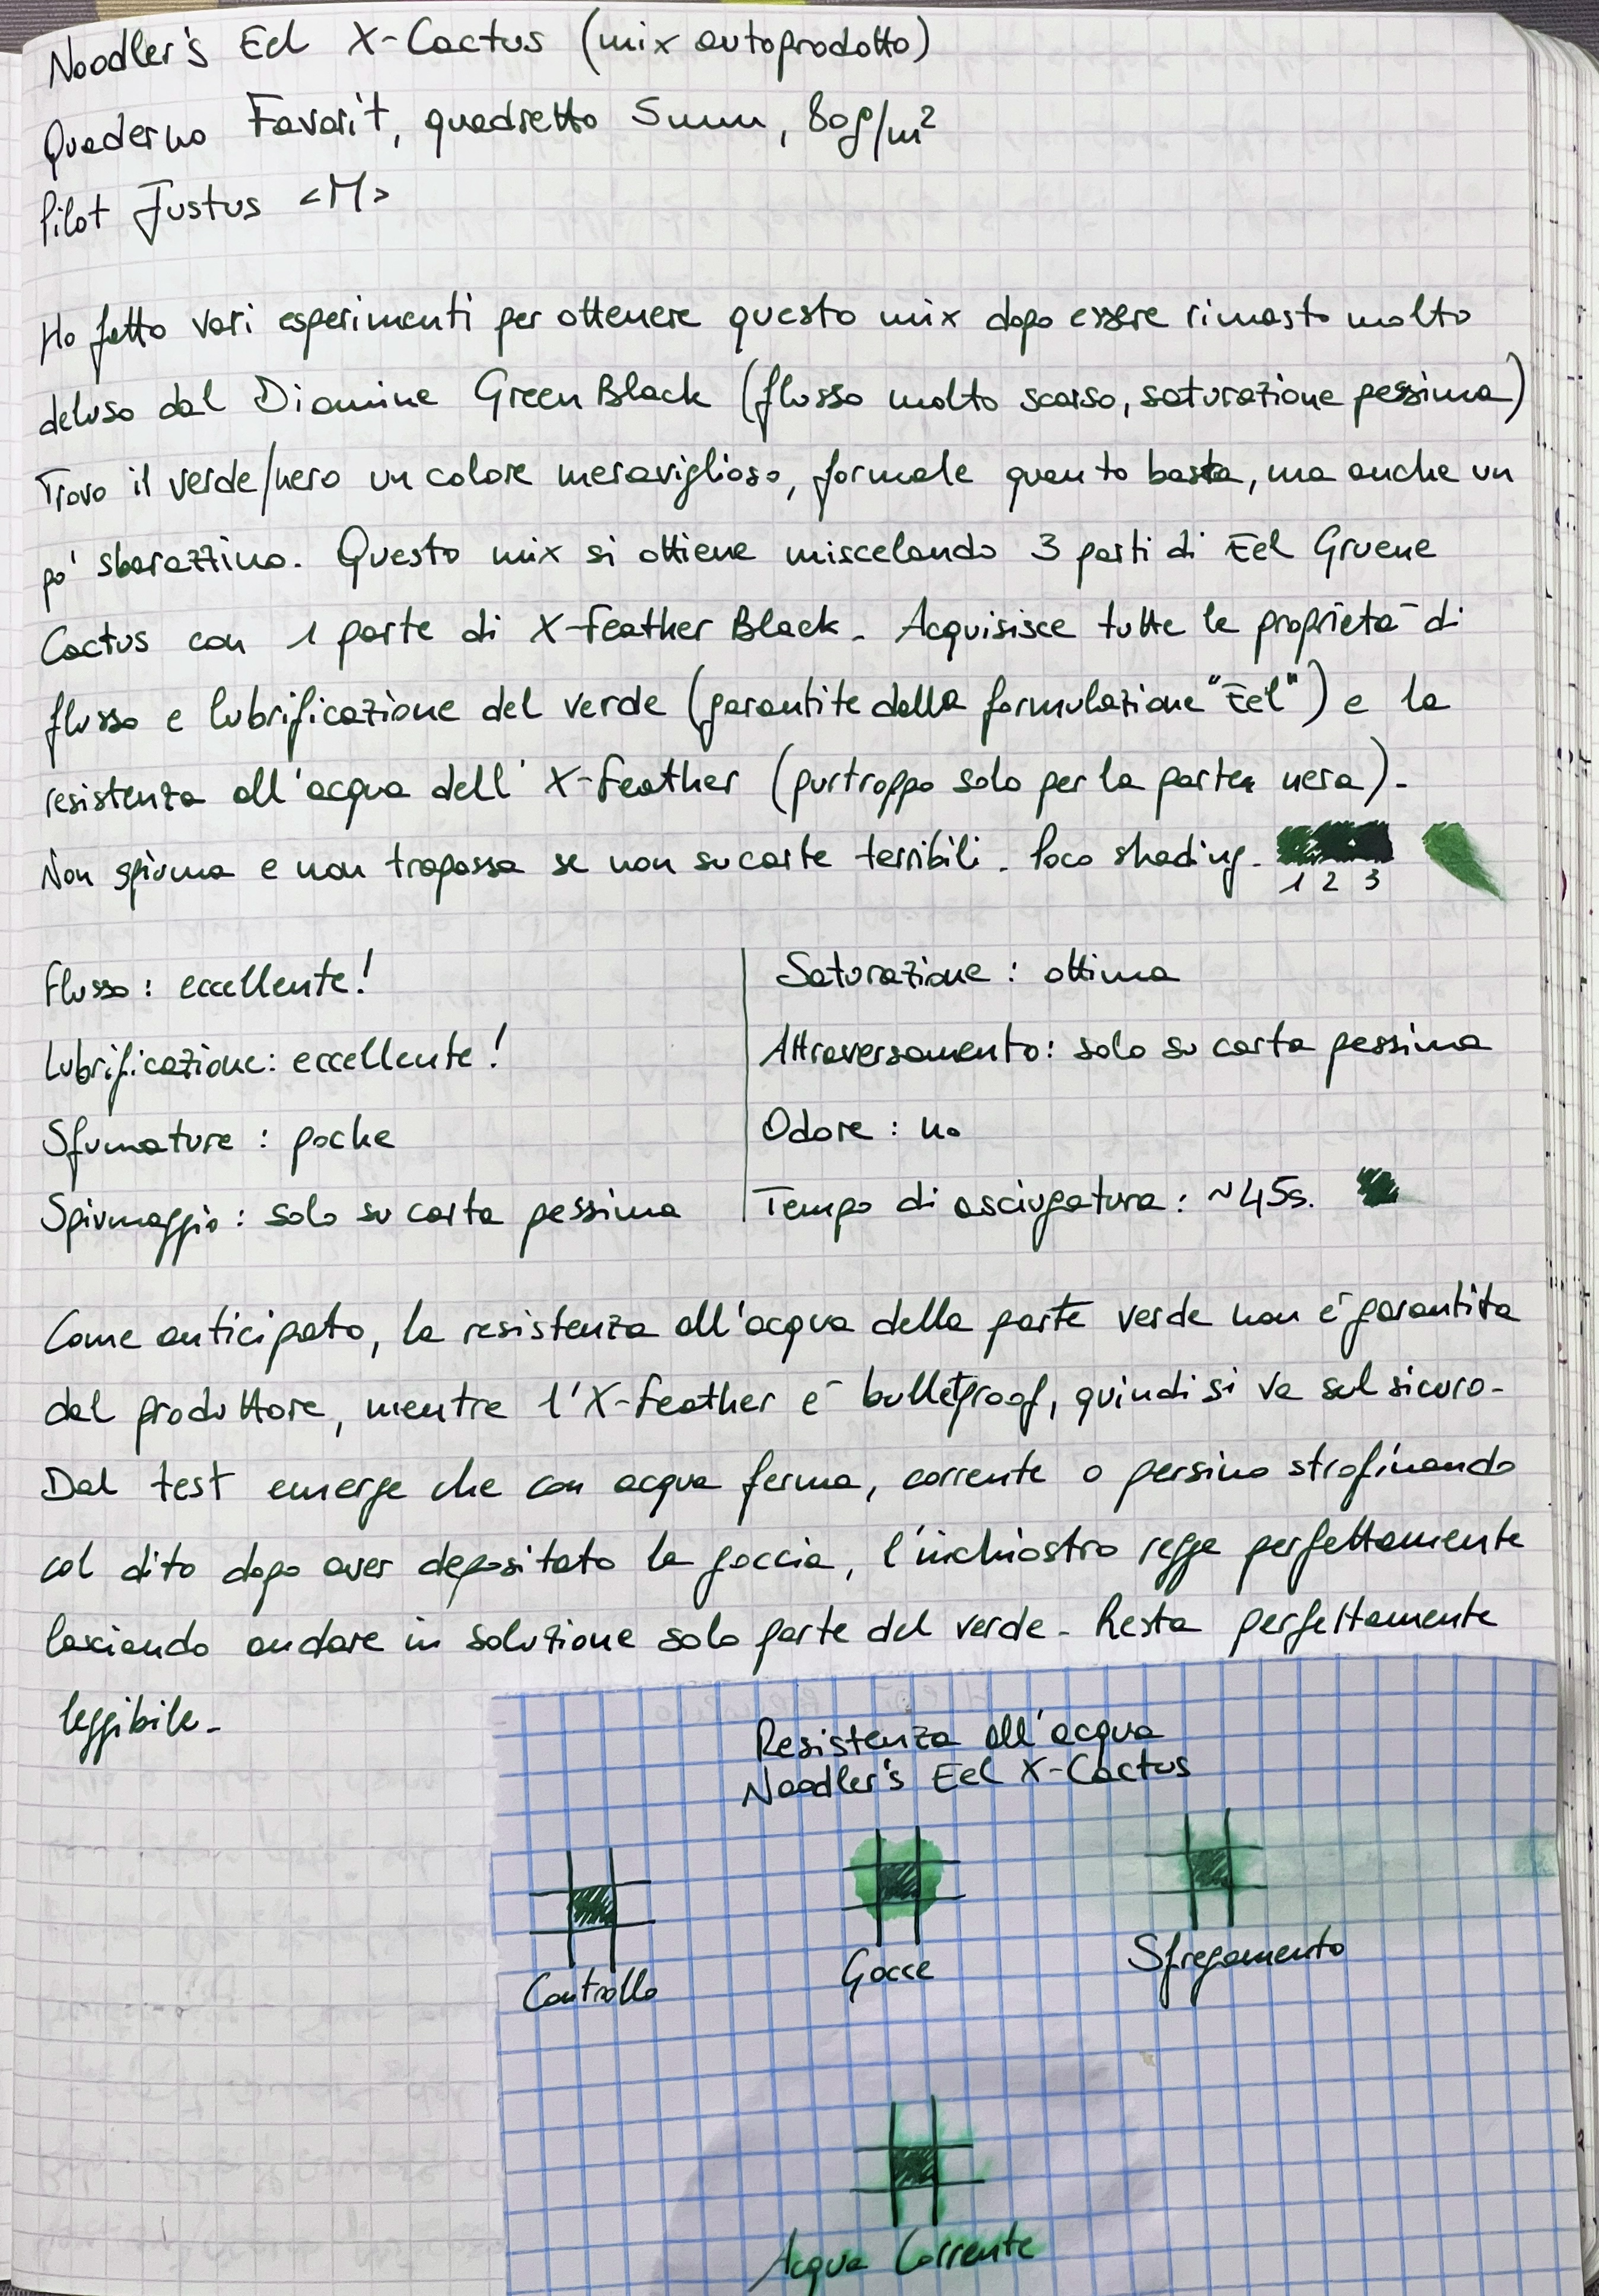 Noodler's Eel X-Cactus (mix autoprodotto)
Quaderno Favorit, quadretto 5mm, 80g/m²
Pilot Justus <M>
Ho fatto vari esperimenti per ottenere questo mix dopo essere rimasto molto
deluso dal Diamine Green Black (flusso molto scarso, saturazione pessima)
Trovo il verde/nero un colore meraviglioso, formale quanto basta, ma anche un
po' sbarazzino. Questo mix si ottiene miscelando 3 parti di Eel Gruene
Cactus con 1 parte di X-Feather Black. Acquisisce tutte le proprietà di
flusso e lubrificazione del verde (garantite dalla formulazione "Eel") e la
resistenza all'acqua dell' X-Feather (purtroppo solo per la parte nera).
Non spiuma e non trapassa se non su carte terribili. Poco shading.
1 2 3
Flusso: eccellente!
Lubrificazione: eccellente!
Sfumature: poche
Spiumaggio: solo su carta pessima
Saturazione: ottima
Attraversamento: solo su carta pessima
Odore: no
Tempo di asciugatura: ~45s.
Come anticipato, la resistenza all'acqua della parte verde non è garantita
dal produttore, mentre l'X-Feather è bulletproof, quindi si va sul sicuro.
Dal test emerge che con acqua ferma, corrente o persino strofinando
col dito dopo aver depositato la goccia, l'inchiostro regge perfettamente
lasciando andare in soluzione solo parte del verde. Resta perfettamente
leggibile.
Resistenza all'acqua
Noodler's Eel X-Cactus
Controllo
Gocce
Sfregamento
Acqua Corrente